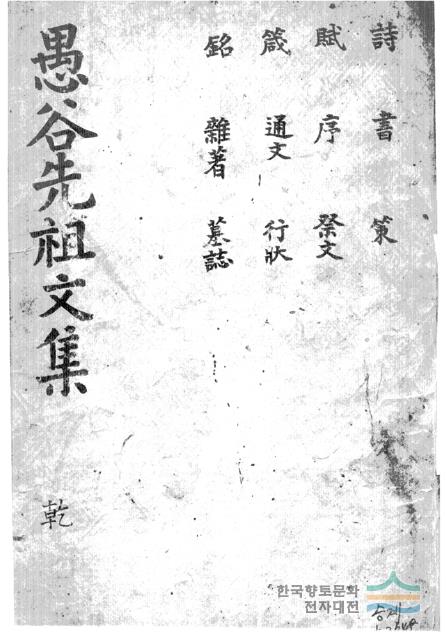 詩 書 策
賦 序 祭文
箴 通文 行狀
銘 雜著 墓誌
愚谷先祖文集 乾
한국향토문화
전자대전